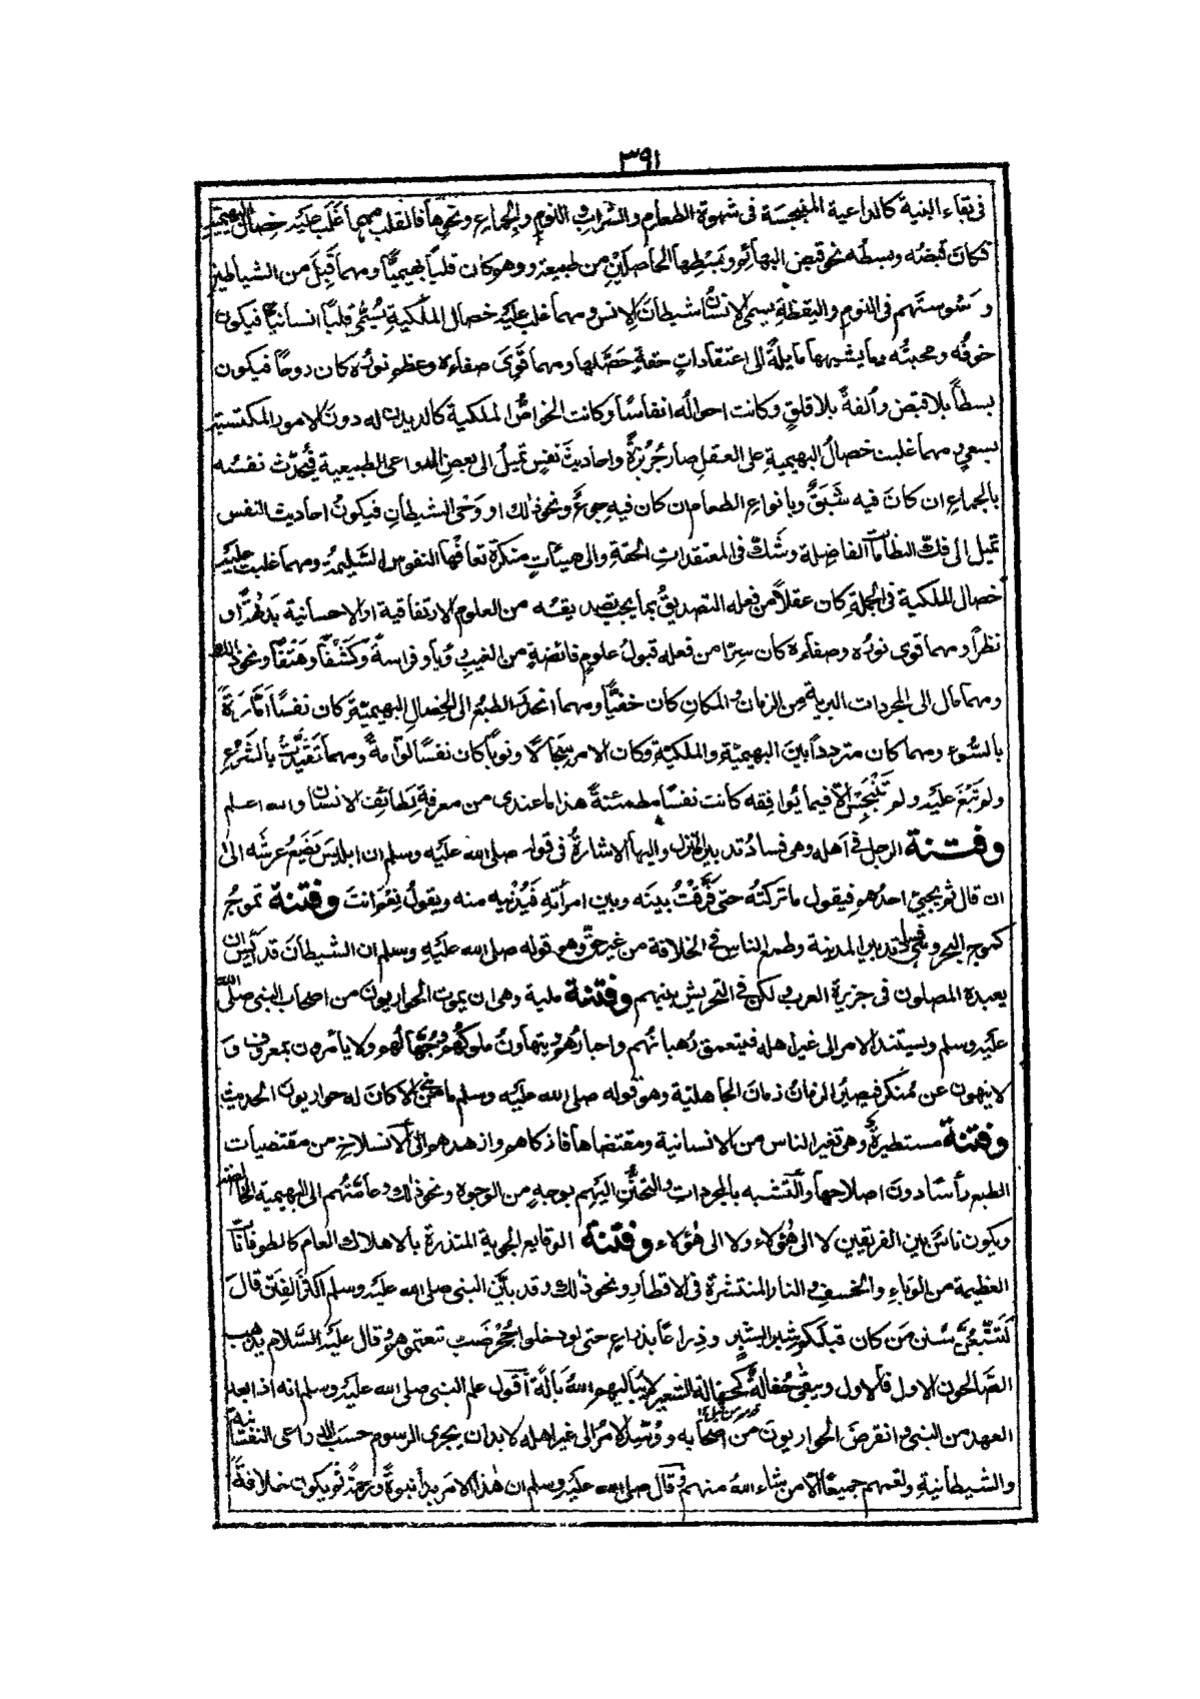 ٣٩١
فى بقاء البنية كالداعية المنبجسة فى شهوة الطعام والشراب والنوم والجماع ونحوها فالقلب مهما غلب عليه خصال البهيمية
فكان قبضه وبسطه نحو قبض البهائم وبسطها الحاصلين من طبيعة ووهم كان قلباً بهيمياً ومهما قبل من الشياطين
وسوستهم فى النوم واليقظة يسمى الانسان شيطان الانس ومهما غلب عليه خصال الملكية يسمى قلباً انسانياً فيكون
خوفه ومحبته وما يشبههما مايلة الى اعتقادات حقة حصلها ومهما قوى صفاءه وعظم نوره كان روحاً فيكون
بسطاً بلا قبض وألفة بلا قلق وكانت احواله انفاساً وكانت الخواص الملكية كالديدن له دون الامور المكتسبة
بسعى ومهما غلبت خصال البهيمية على العقل صار جربزة واحاديث نفس تميل الى بعض الدواعى الطبيعية فيحدث نفسه
بالجماع ان كان فيه شبق وبانواع الطعام ان كان فيه جوع ونحو ذلك او وحى الشيطان فيكون احاديث النفس
تميل الى فك النظامات الفاضلة وشك فى المعتقدات الحقة والى هيئات منكرة تعافها النفوس السليمة ومهما غلبت عليه
خصال الملكية فى الجملة كان عقلاً من فعله التصديق بما يجب تصديقه من العلوم الارتفاقية او الاحسانية بداهة او
نظراً ومهما قوى نوره وصفاءه كان سرا من فعله قبول علوم فائضة من الغيب رؤيا وفراسة وكشفاً وهتفاً ونحو ذلك
ومهما مال الى المجردات البرية من الزمان والمكان كان خفياً ومهما انحدر الطبع الى الخصال البهيمية كان نفساً امارة
بالسوء ومهما كان متردداً بين البهيمية والملكية وكان الامر سجالاً ونوباً كان نفساً لوامة ومهما تقيدت بالشرع
ولم تبغ عليه ولم تنبجس الا فيما يوافقه كانت نفساً مطمئنة هذا ما عندى من معرفة لطائف الانسان والله اعلم
وفتنة الرجل فى اهله وهى فساد تدبير المنزل واليها الاشارة فى قوله صلى الله عليه وسلم ان ابليس يضع عرشه الى
ان قال ثم يجيئ احدهم فيقول ما تركته حتى فرقت بينه وبين امرأته فيدنيه منه ويقول نعم انت وفتنة تموج
كموج البحر وهى فساد تدبير المدينة وطمع الناس فى الخلافة من غير حق وهو قوله صلى الله عليه وسلم ان الشيطان قد أيس ان
يعبده المصلون فى جزيرة العرب ولكن فى التحريش بينهم وفتنة ملية وهى ان يموت الحواريون من اصحاب النبى صلى الله
عليه وسلم ويستند الامر الى غير اهله فيتعمق رهبانهم واحبارهم ويتهاون ملوكهم وجهالهم ولا يأمرون بمعروف و
لا ينهون عن منكر فيصير الزمان زمان الجاهلية وهو قوله صلى الله عليه وسلم ما من نبى الا كان له حواريون الحديث
وفتنة مستطيرة وهى تغير الناس من الانسانية ومقتضاها فازكاهم وازهدهم الى الانسلاخ من مقتضيات
الطبع رأساً دون اصلاحها والتشبه بالمجردات والتحنن اليهم بوجه من الوجوه ونحو ذلك وعامتهم الى البهيمية الخالصة
ويكون ناس بين الفريقين لا الى هؤلاء ولا الى هؤلاء وفتنة الوقايع الجوية المنذرة بالاهلاك العام كالطوفانات
العظيمة من الوباء والخسف والنار المنتشرة فى الاقطار ونحو ذلك وقد بين النبى صلى الله عليه وسلم اكثر الفتن قال
لتتبعن سنن من كان قبلكم شبرا بشبر وذراعاً بذراع حتى لو دخلوا جحر ضب تبعتموهم وقال عليه السلام يذهب
الصالحون الاول فالاول ويبقى حفالة كحفالة الشعير لا يباليهم الله بالة أقول علم النبى صلى الله عليه وسلم انه اذا بعد
العهد من النبى وانقرض الحواريون من اصحابه ووسد الامر الى غير اهله لا بد ان يجرى الرسوم حسب الدواعى النفسانية
والشيطانية ولتعمهم جميعاً الا من شاء الله منهم وقال صلى الله عليه وسلم ان هذا الامر بدأ نبوة ورحمة ثم يكون خلافة